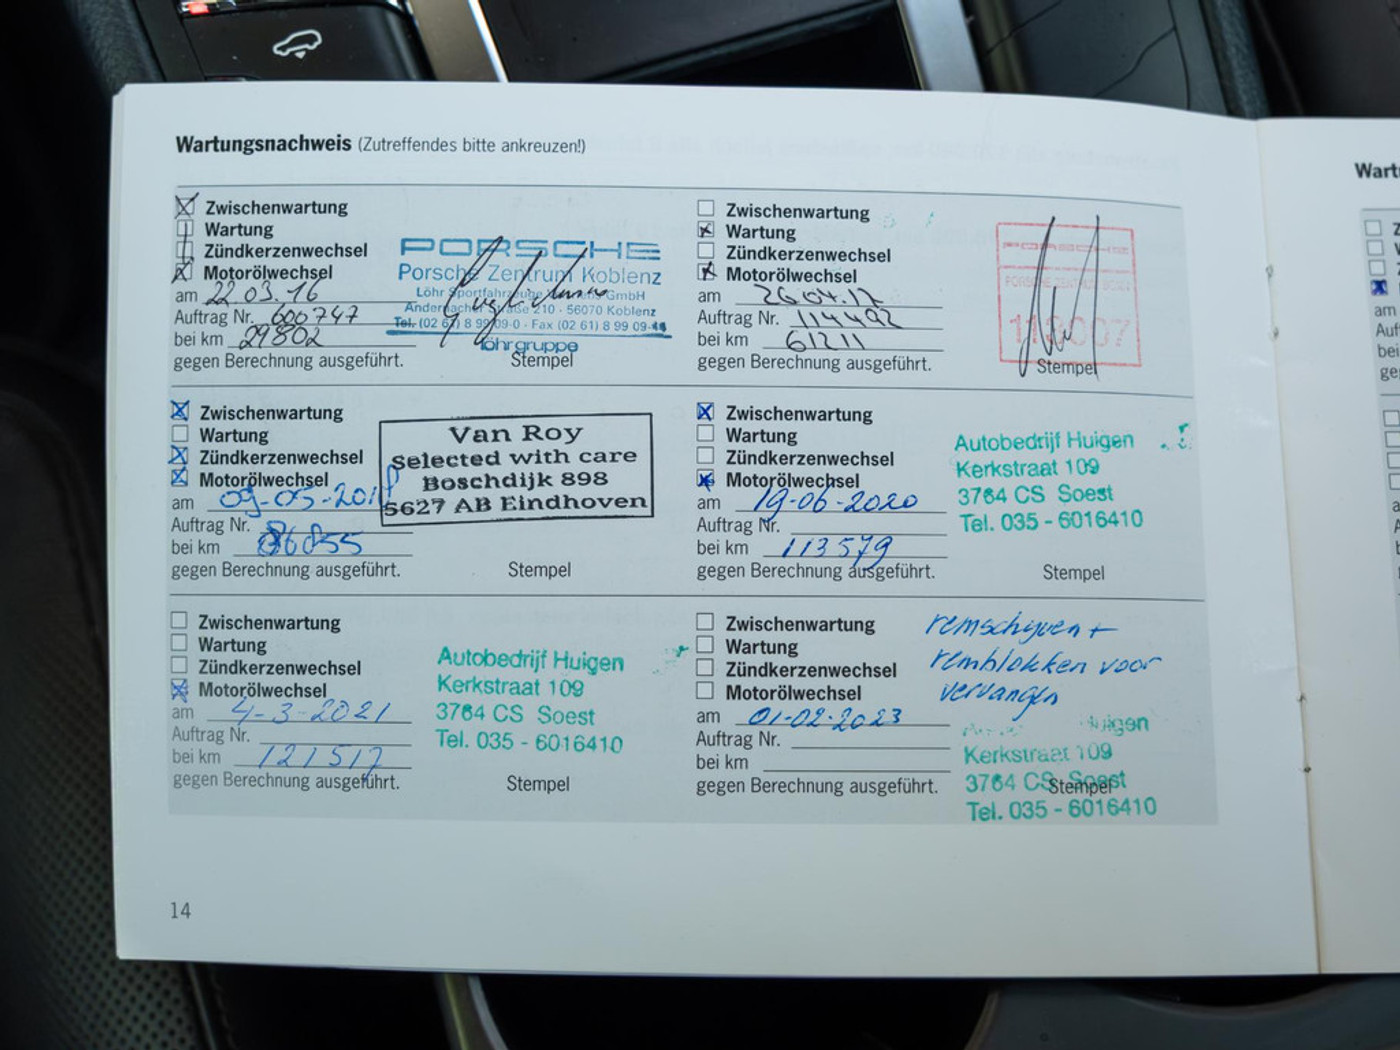 Wartungsnachweis (Zutreffendes bitte ankreuzen!)
Zwischenwartung
Wartung
Zündkerzenwechsel
Motorölwechsel
am 22.03.16
Auftrag Nr. 600747
bei km 29802
gegen Berechnung ausgeführt.
PORSCHE
Porsche Zentrum Koblenz
Löhr Sportfahrzeuge GmbH
Andernacher Straße 210 - 56070 Koblenz
Tel. (02 61) 8 99 09-0 - Fax (02 61) 8 99 09-
löhrgruppe
Stempel
Zwischenwartung
Wartung
Zündkerzenwechsel
Motorölwechsel
am 26.04.17
Auftrag Nr. 114492
bei km 61211
gegen Berechnung ausgeführt.
PORSCHE
Stempel
Zwischenwartung
Wartung
Zündkerzenwechsel
Motorölwechsel
am 09-05-201
Auftrag Nr.
bei km 86855
gegen Berechnung ausgeführt.
Van Roy
Selected with care
Boschdijk 898
5627 AB Eindhoven
Stempel
Zwischenwartung
Wartung
Zündkerzenwechsel
Motorölwechsel
am 19-06-2020
Auftrag Nr.
bei km 113579
gegen Berechnung ausgeführt.
Autobedrijf Huigen
Kerkstraat 109
3764 CS Soest
Tel. 035 - 6016410
Stempel
Zwischenwartung
Wartung
Zündkerzenwechsel
Motorölwechsel
am 4-3-2021
Auftrag Nr.
bei km 121517
gegen Berechnung ausgeführt.
Autobedrijf Huigen
Kerkstraat 109
3764 CS Soest
Tel. 035 - 6016410
Stempel
Zwischenwartung
Wartung
Zündkerzenwechsel
Motorölwechsel
am 01-02-2023
Auftrag Nr.
bei km
gegen Berechnung ausgeführt.
remschijven +
remblokken voor
vervangen
Huigen
Kerkstraat 109
3764 CS Soest
Stempel
Tel. 035 - 6016410
14